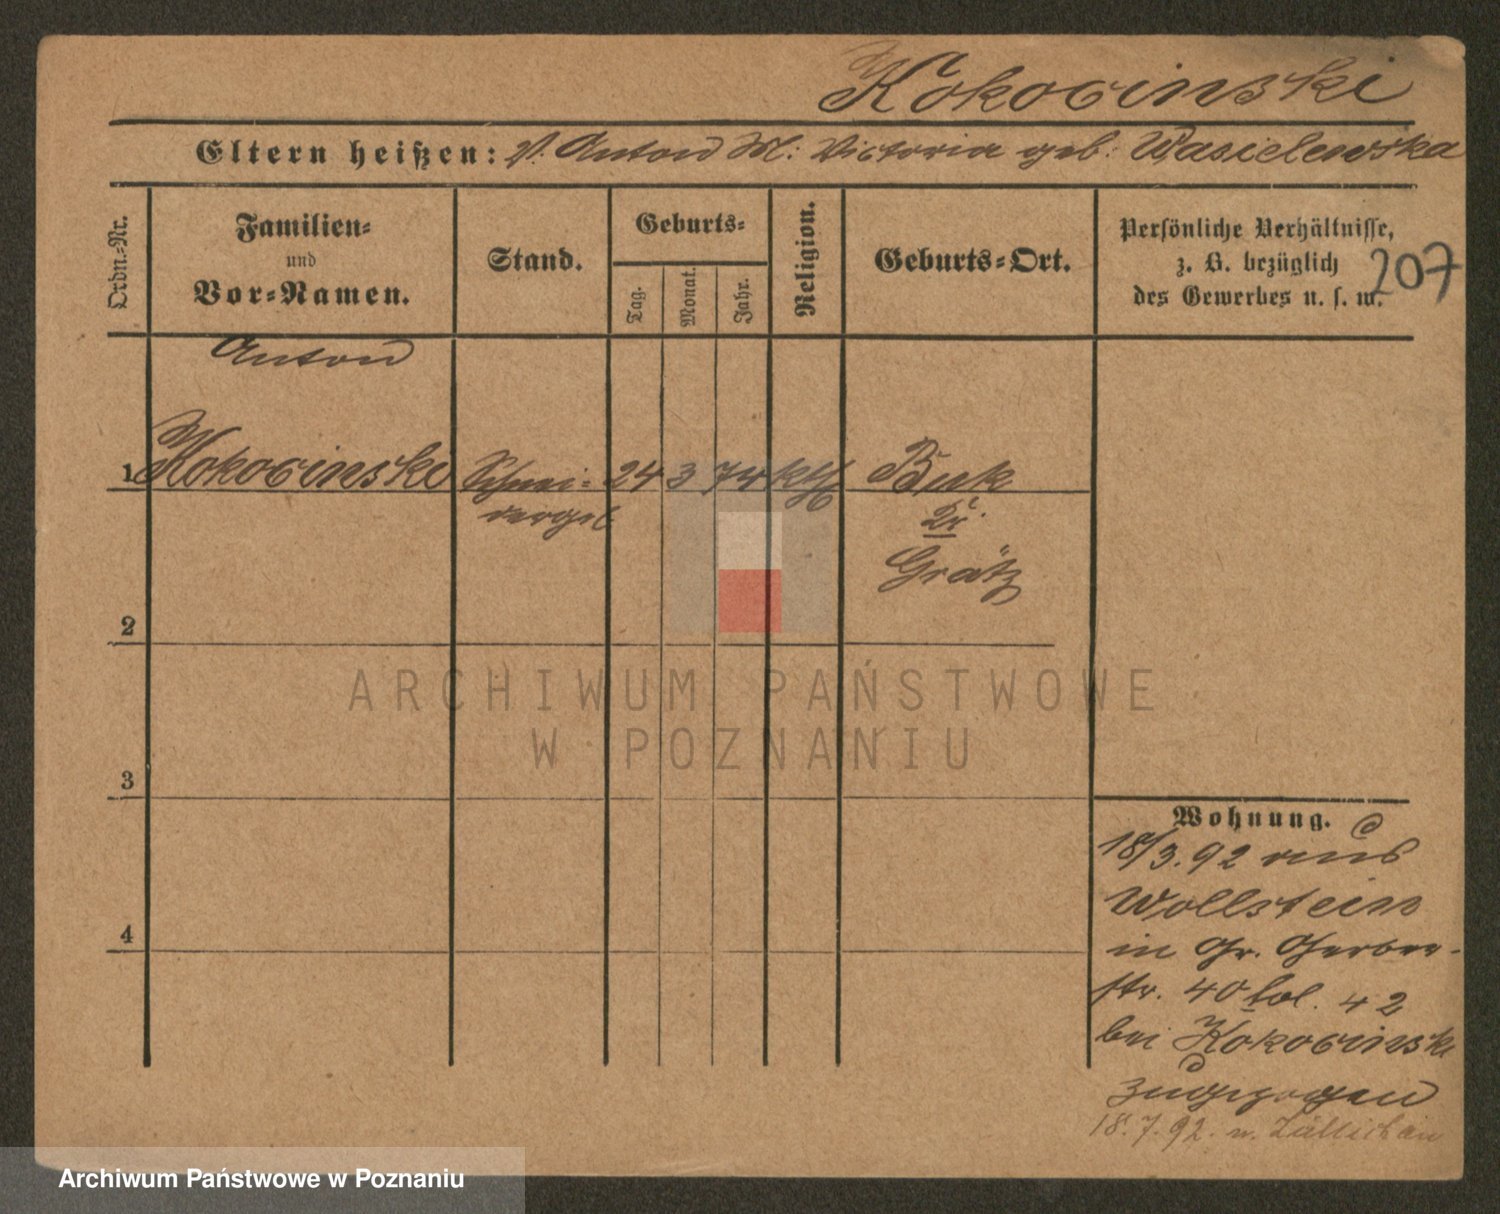 Kokocinski
Eltern heißen: V. Anton M: Victoria geb: Wasielewska
Ordn.-Nr.
Familien-
und
Vor-Namen.
Stand.
Geburts-
Tag.
Monat.
Jahr.
Religion.
Geburts-Ort.
Persönliche Verhältnisse,
z. B. bezüglich
des Gewerbes u. s. w.
207
Anton
1 Kokocinski Schnei- 24 3 74 kth Buk
dergel Kr.
Grätz
2
3
4
ARCHIWUM PAŃSTWOWE
W POZNANIU
Wohnung.
18/3.92 aus
Wollstein
in Gr. Gerber-
str. 40 42
bei Kokocinski
zugezogen
18.7.92. n. Züllichau
Archiwum Państwowe w Poznaniu